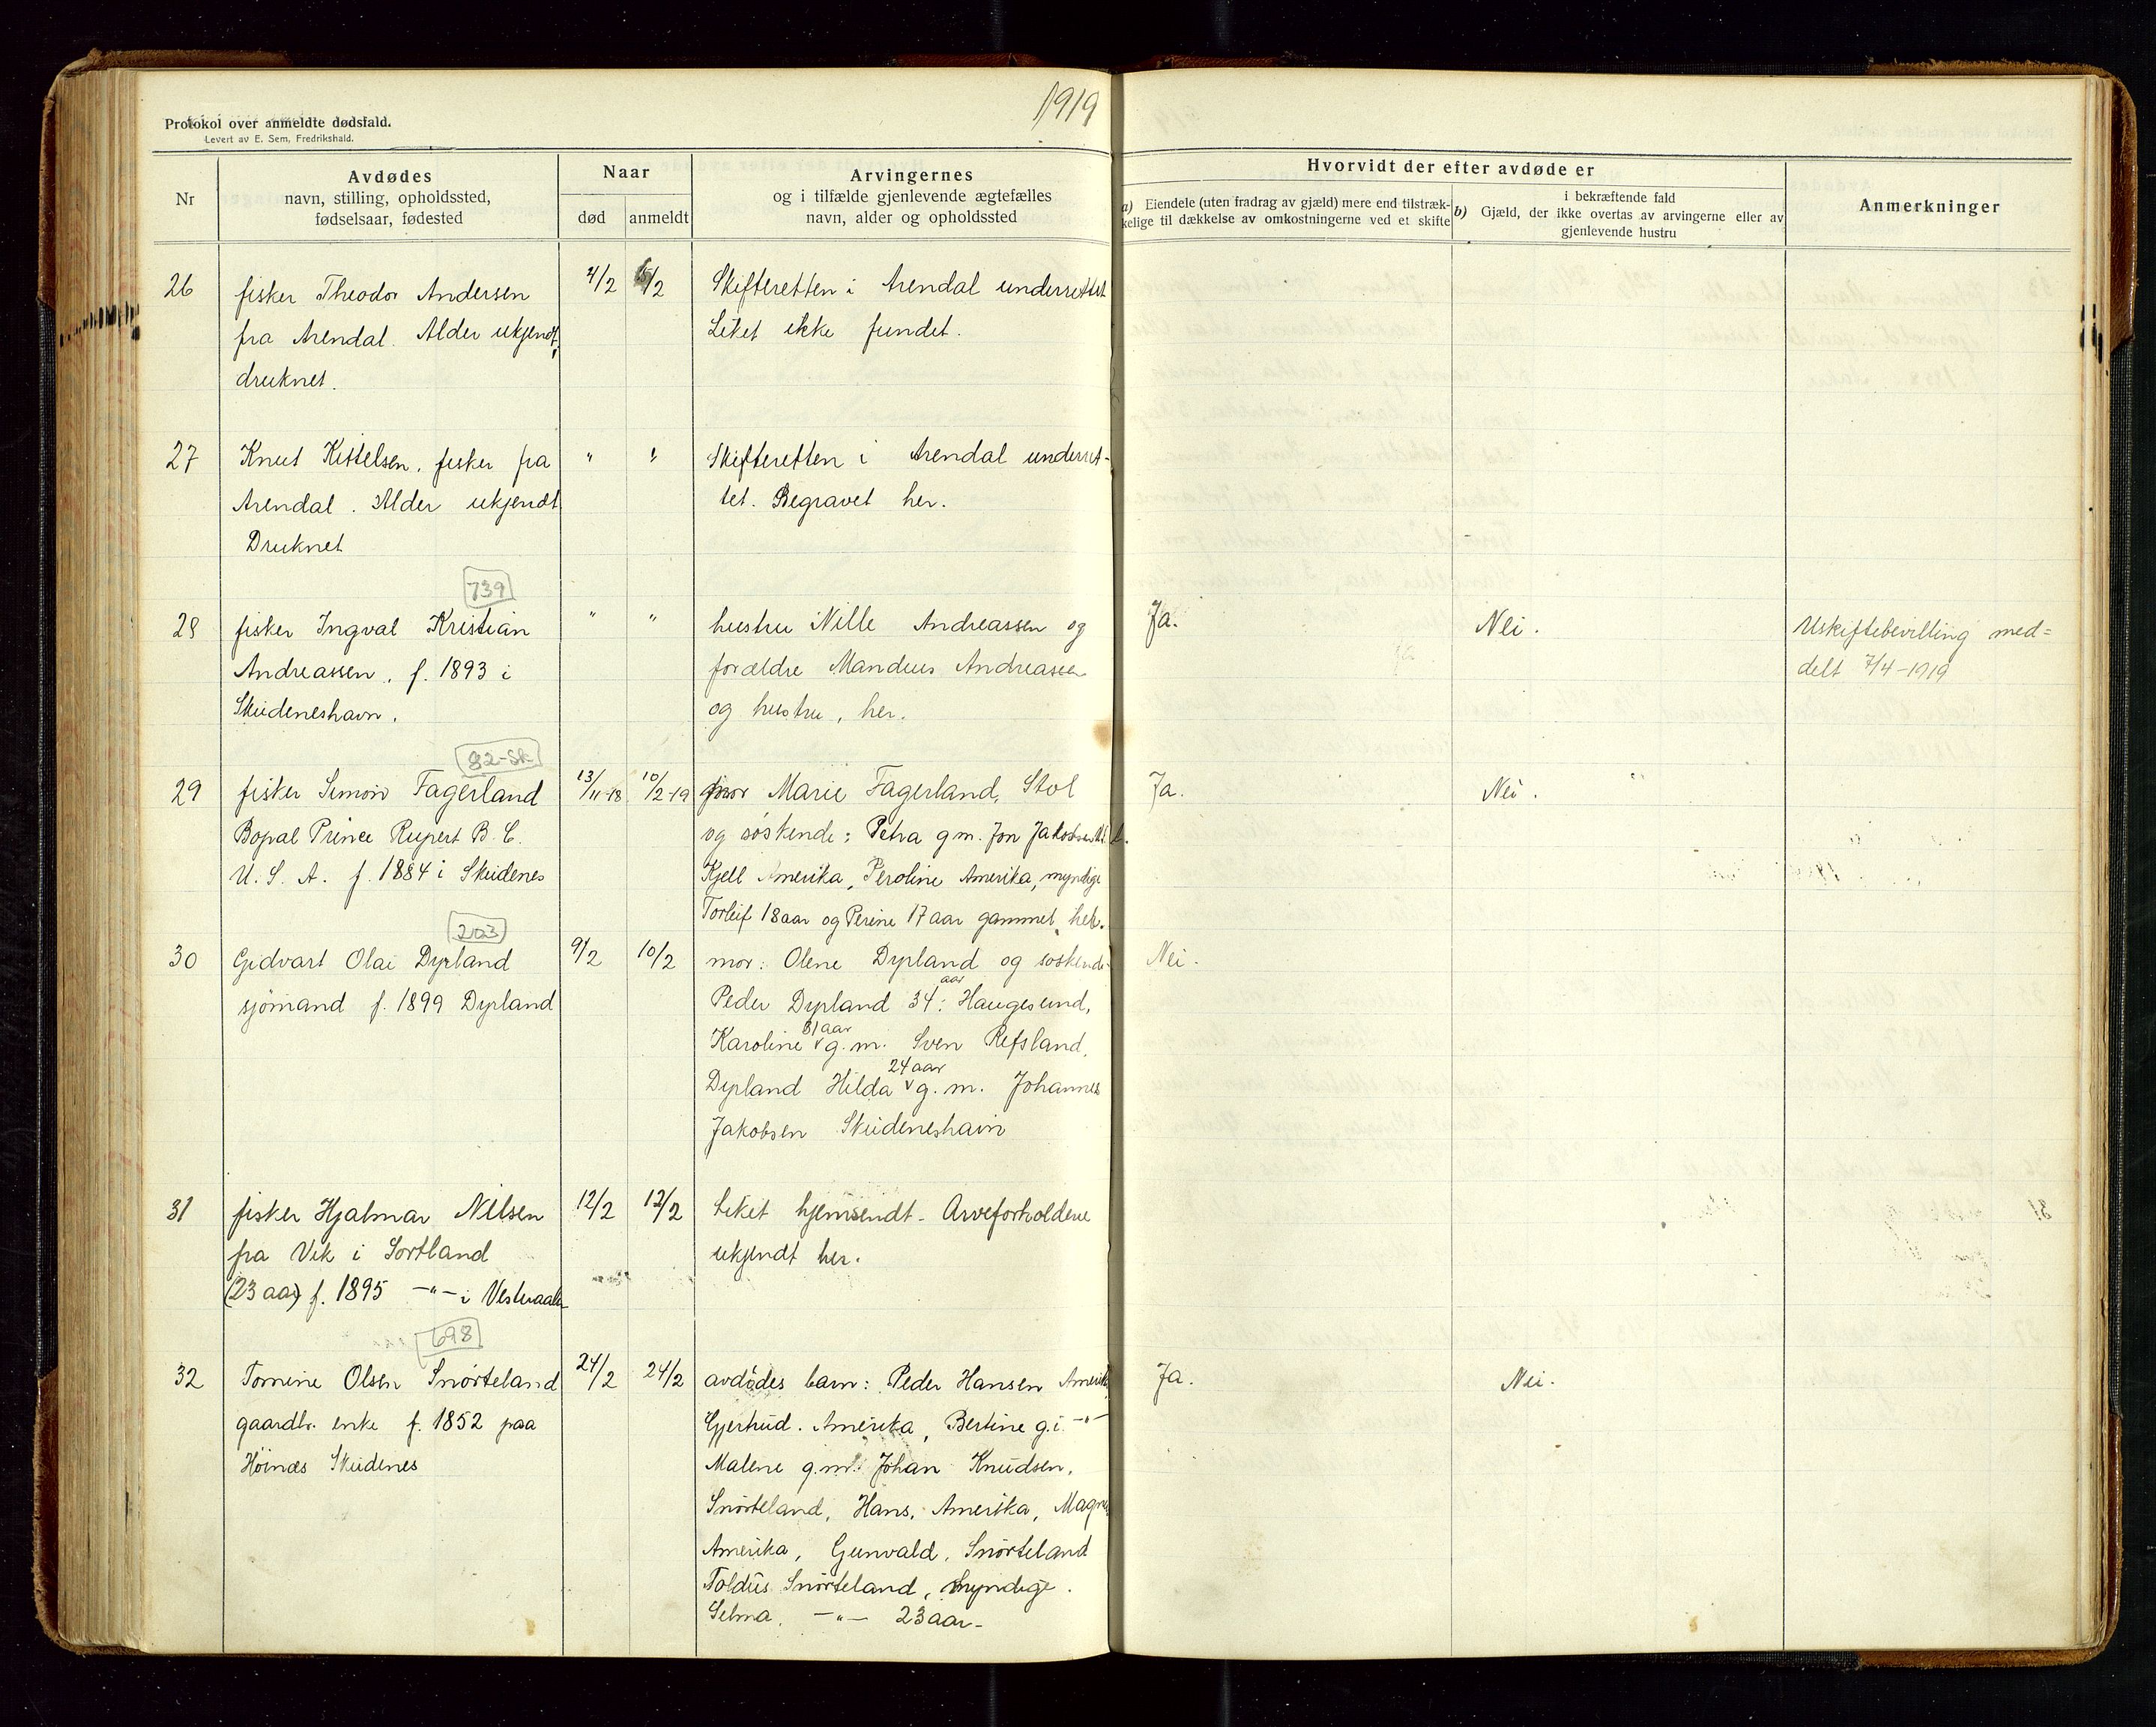 1919
Protokol over anmeldte dødsfald.
Levert av E. Sem, Fredrikshald.
Nr
Avdødes
navn, stilling, opholdssted,
fødselsaar, fødested
Naar
død
anmeldt
Arvingernes
og i tilfælde gjenlevende ægtefælles
navn, alder og opholdssted
Hvorvidt der efter avdøde er
a) Eiendele (uten fradrag av gjæld) mere end tilstræk-
kelige til dækkelse av omkostningerne ved et skifte
i bekræftende fald
b) Gjæld, der ikke overtas av arvingerne eller av
gjenlevende hustru
Anmerkninger
26
fisker Theodor Andersen
fra Arendal. Alder ukjendt,
druknet.
4/2
5/2
Skifteretten i Arendal underrettet
Liket ikke fundet.
27
Knut Kittelsen, fisker fra
Arendal. Alder ukjendt
Druknet
"
"
Skifteretten i Arendal underret-
tet. Begravet her.
739
28
fisker Ingval Kristian
Andreassen, f. 1893 i
Skudeneshavn.
"
"
hustru Nille Andreassen og
forældre Mandius Andreasen
og hustru, her.
Ja.
Nei.
Uskiftebevilling med=
delt 7/4-1919
82-Sk
29
fisker Simon Fagerland
Bopæl Prince Rupert B. C.
U. S. A. f. 1884 i Skudenes
13/11-18
10/2-19
mor Marie Fagerland, Stol
og søskende: Petra g m. Jon Jakobsen
Kjell Amerika, Peroline Amerika, myndige
Torleif 18 aar og Perine 17 aar gammel, her.
Ja.
Nei.
203
30
Gedvart Olai Dyrland
sjømand f. 1899 Dyrland
9/2
10/2
mor: Olene Dyrland og søskende
Peder Dyrland 34 aar: Haugesund,
Karoline 31 aar g. m. Sven Refsland,
Dyrland Hilda 24 aar g. m. Johannes
Jakobsen Skudeneshavn
Nei.
31
fisker Hjalmar Nilsen
fra Vik i Sortland
(23 aar) f. 1895 -"- i Vesteraalen
12/2
12/2
Liket hjemsendt - Arveforholdene
ukjendt her.
698
32
Tomine Olsen Snørteland
gaardbr. enke f. 1852 paa
Høinæs Skudenes
24/2
24/2
avdødes barn: Peder Hansen Amerika
Gjertrud. Amerika, Bertine g. i. -"-
Malene g. m. Johan Knudsen,
Snørteland, Hans, Amerika, Magna
Amerika, Gunvald, Snørteland
Toldus Snørteland, myndige.
Selma, -"- 23 aar-
Ja.
Nei.